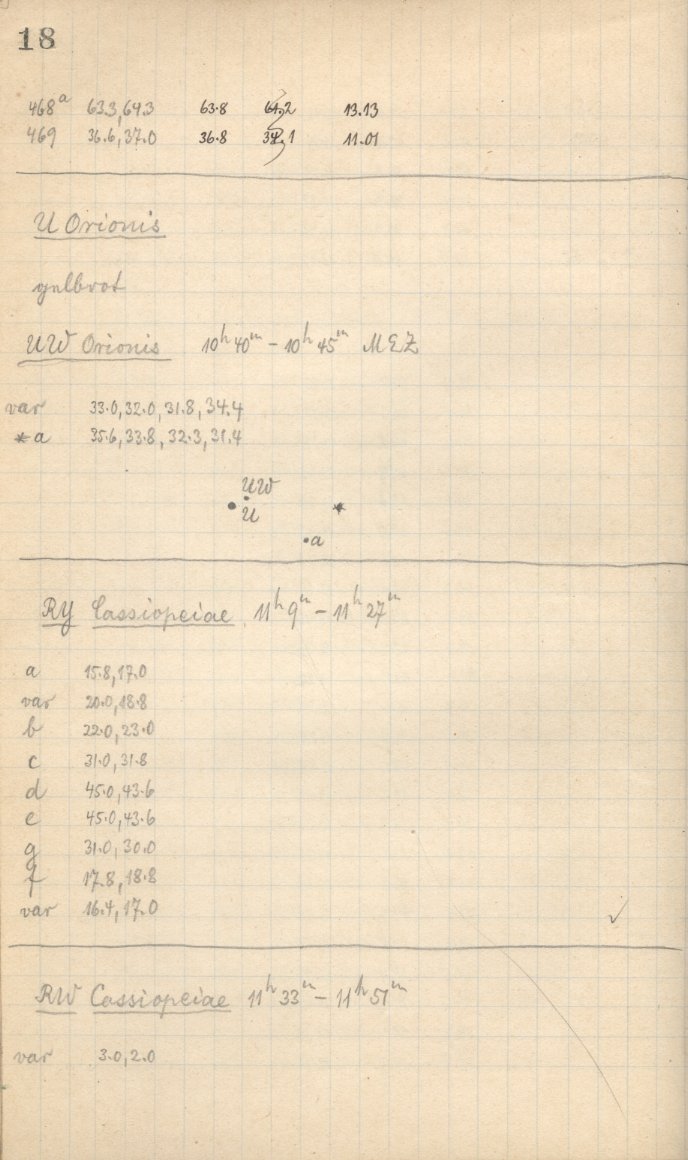 18
468a 63.3, 64.3 63.8 13.13
469 36.6, 37.0 36.8 11.01
U Orionis
gelbrot
UW Orionis 10h 40m – 10h 45m MEZ
var 33.0, 32.0, 31.8, 34.4
*a 35.6, 33.8, 32.3, 31.4
UW
U
a
RY Cassiopeiae 11h 9m – 11h 27m
a 15.8, 17.0
var 20.0, 18.8
b 22.0, 23.0
c 31.0, 31.8
d 45.0, 43.6
e 45.0, 43.6
g 31.0, 30.0
f 17.8, 18.8
var 16.4, 17.0
RW Cassiopeiae 11h 33m – 11h 51m
var 3.0, 2.0